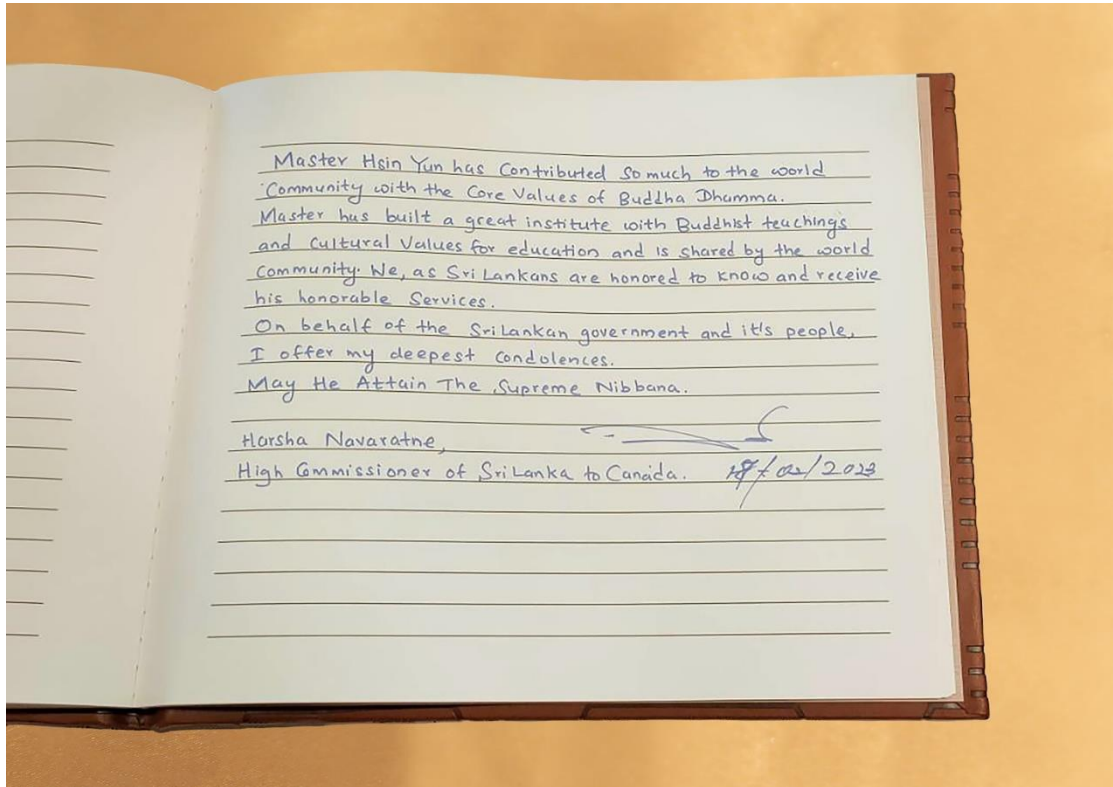 Master Hsin Yun has Contributed So much to the world
Community with the Core Values of Buddha Dhamma.
Master has built a great institute with Buddhist teachings
and Cultural Values for education and is shared by the world
Community. We, as Sri Lankans are honored to know and receive
his honorable Services.
On behalf of the Sri Lankan government and it's people,
I offer my deepest Condolences.
May He Attain The Supreme Nibbana.
Harsha Navaratne,
High Commissioner of Sri Lanka to Canada. /02/2023